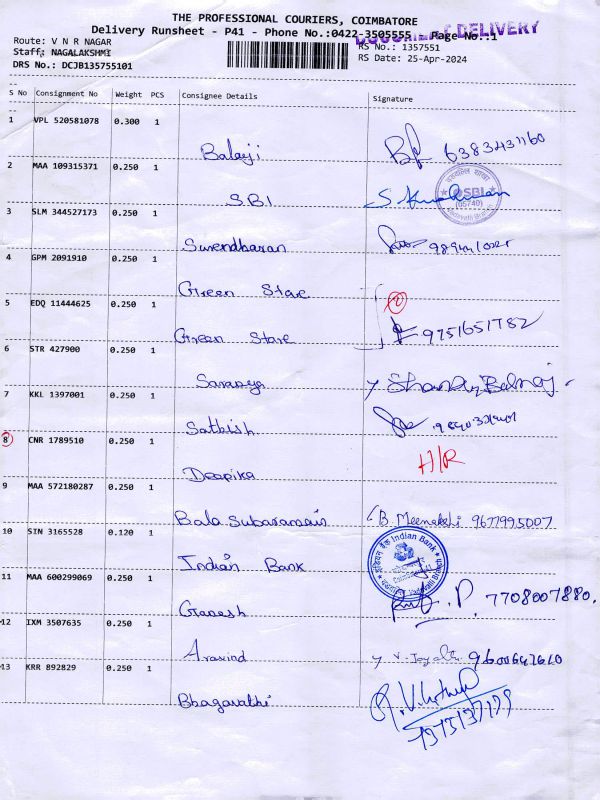 THE PROFESSIONAL COURIERS, COIMBATORE
Delivery Runsheet - P41 - Phone No.:0422-3505555 Page No.:1
DOCUMENT DELIVERY
Route: V N R NAGAR
RS No.: 1357551
Staff: NAGALAKSHMI
RS Date: 25-Apr-2024
DRS No.: DCJB135755101
S No Consignment No Weight PCS Consignee Details Signature
1 VPL 520581078 0.300 1
Balaji 6383431160
2 MAA 109315371 0.250 1
SBI
SBI
(05740)
3 SLM 344527173 0.250 1
Surendharan
4 GPM 2091910 0.250 1
Green Stare
5 EDQ 11444625 0.250 1
Green Stare 9751651782
6 STR 427900 0.250 1
Saranya
7 KKL 1397001 0.250 1
Sathish
8 CNR 1789510 0.250 1
Deepika H/R
9 MAA 572180287 0.250 1
Bala Subaramani B. Meenakshi 9677995007
10 SIN 3165528 0.120 1
Indian Bank
Indian Bank
11 MAA 600299069 0.250 1
Ganesh P. 7708007880.
12 IXM 3507635 0.250 1
Aravind
13 KRR 892829 0.250 1
Bhagavathi